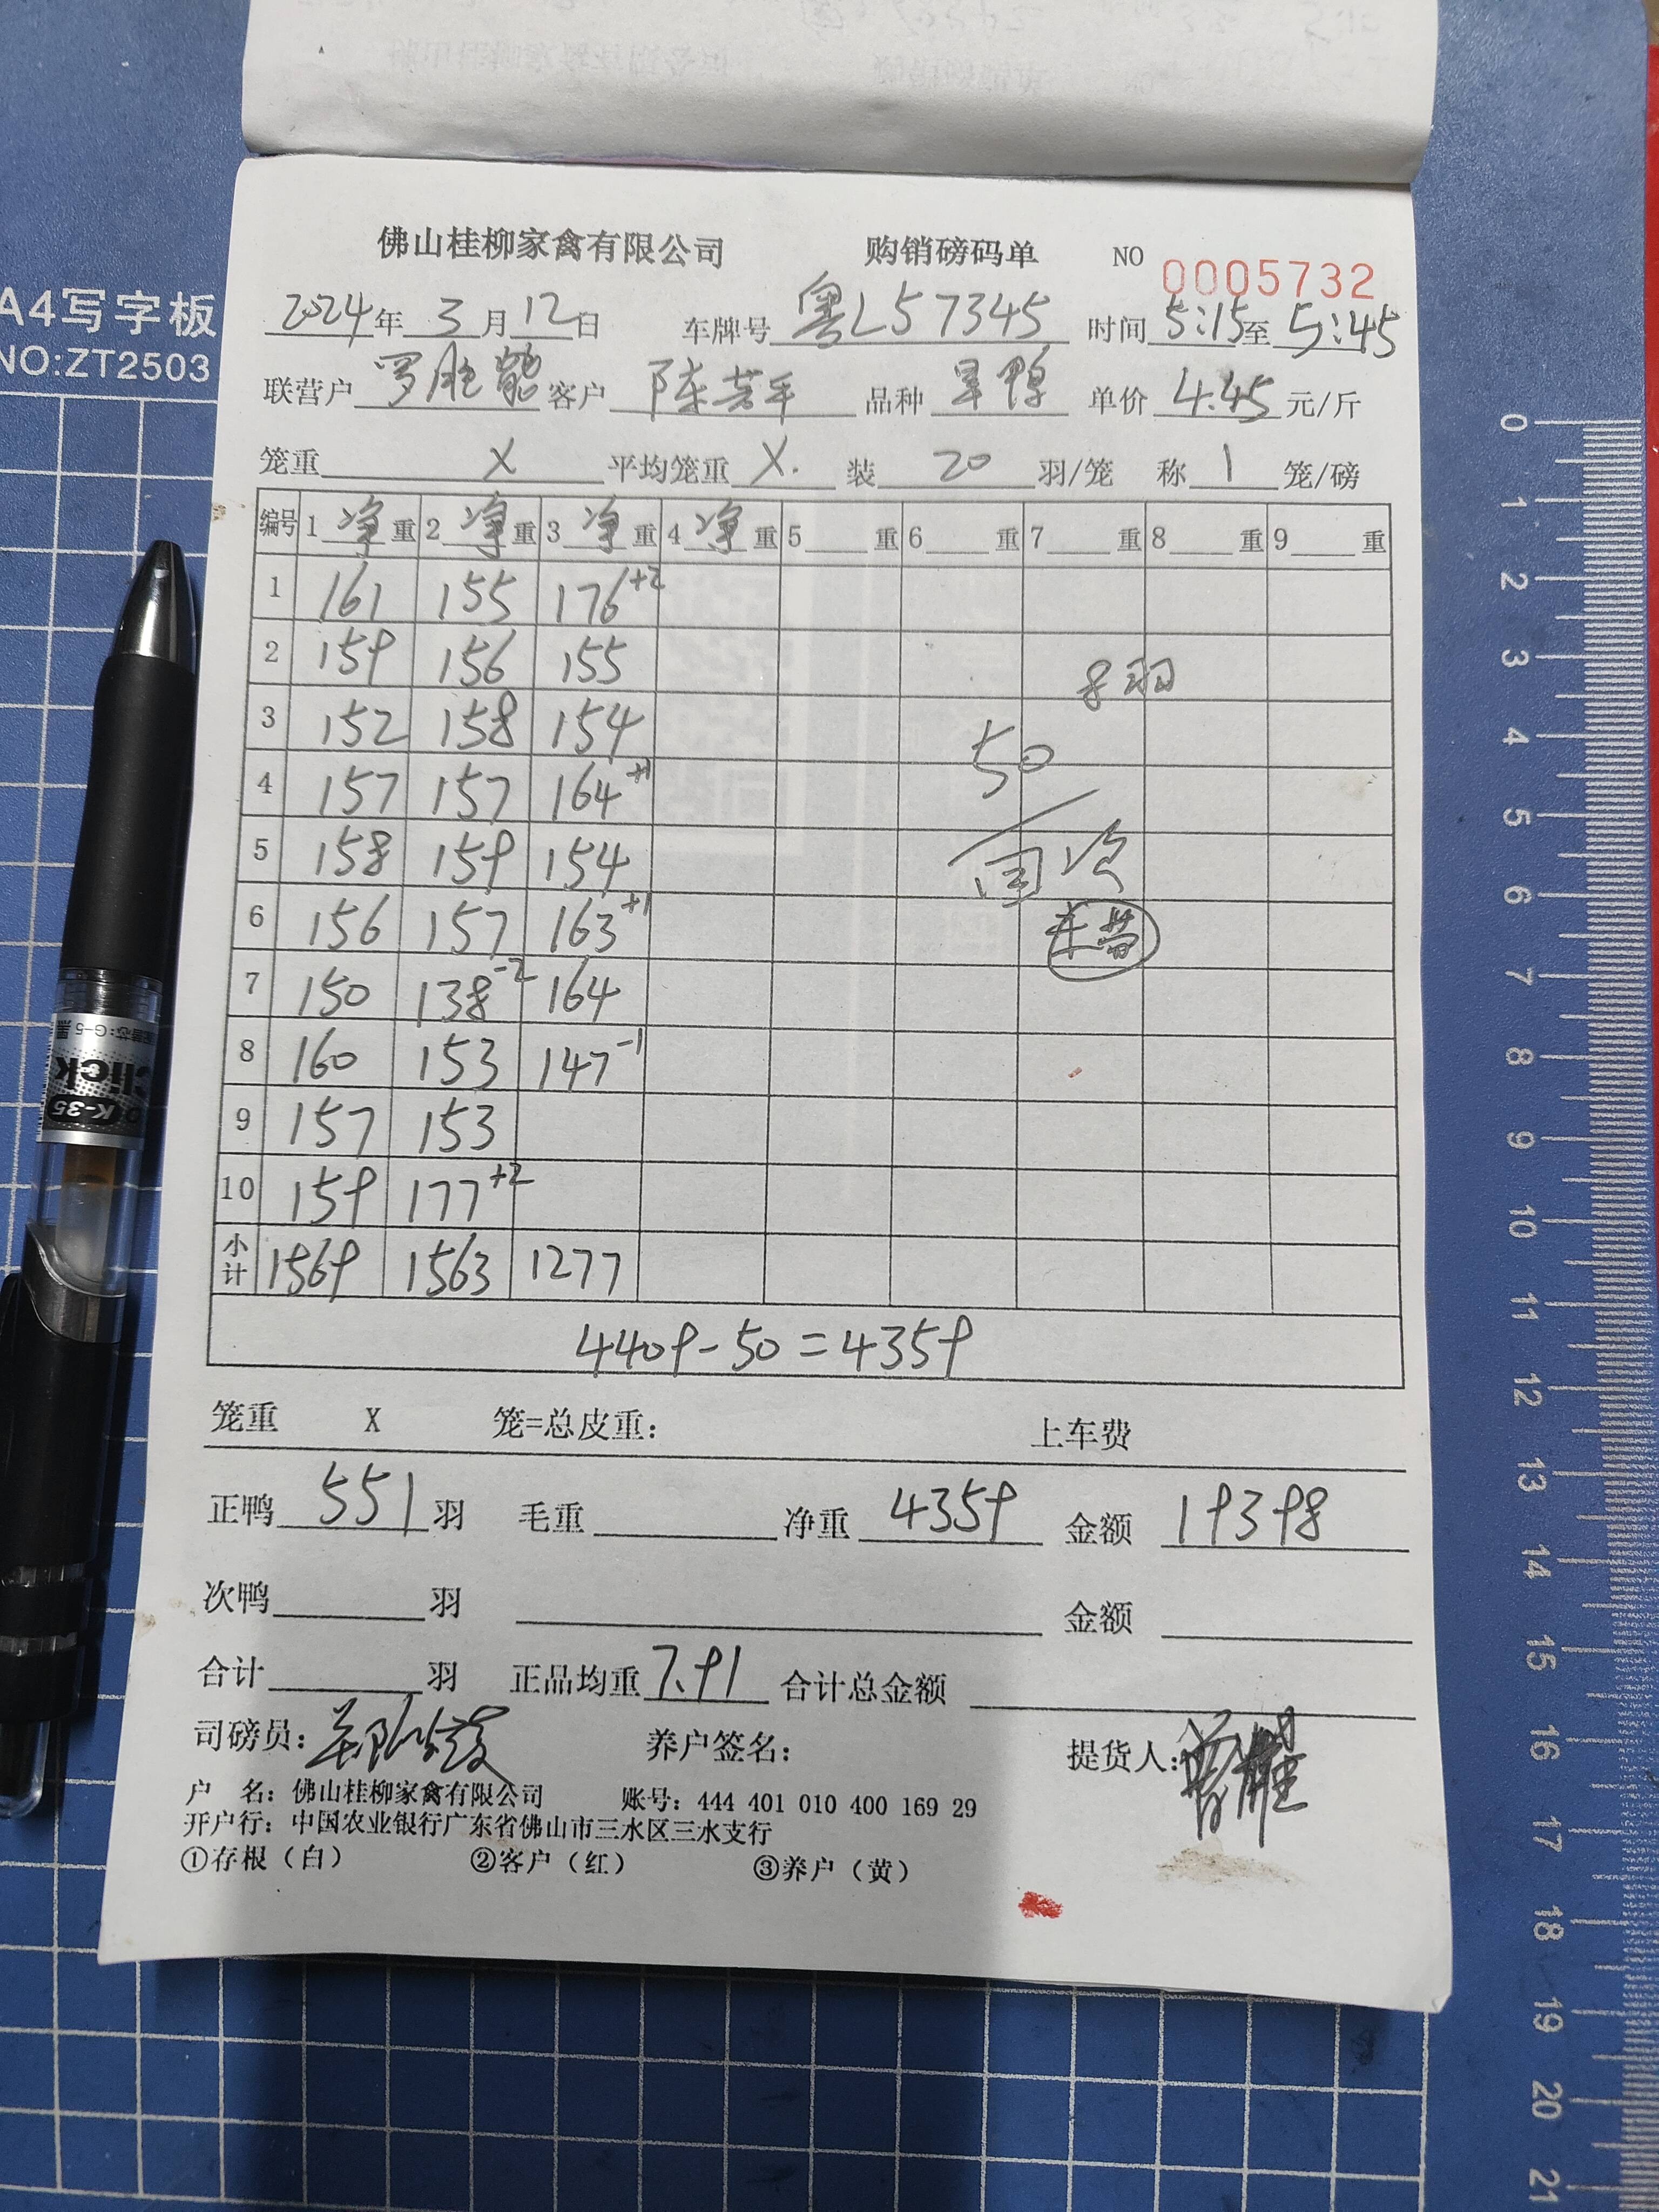 A4写字板
NO:ZT2503
佛山桂柳家禽有限公司 购销磅码单 NO 0005732
2024年 3月 12日 车牌号 粤L57345 时间 5:15至 5:45
联营户 罗胜能 客户 陈芳平 品种 旱鸭 单价 4.45 元/斤
笼重 X 平均笼重 X. 装 20 羽/笼 称 1 笼/磅
编号 1 净重 2 净重 3 净重 4 净重 5 重 6 重 7 重 8 重 9 重
1 161 155 176+2
2 159 156 155 8羽
3 152 158 154 50
4 157 157 164+1
5 158 159 154 次
6 156 157 163+1
7 150 138-2 164
8 160 153 147-1
9 157 153
10 159 177+2
小计 1569 1563 1277
4409-50=4359
笼重 X 笼=总皮重: 上车费
正鸭 551 羽 毛重 净重 4359 金额 19398
次鸭 羽 金额
合计 羽 正品均重 7.91 合计总金额
司磅员: 养户签名: 提货人:
户 名: 佛山桂柳家禽有限公司 账号: 444 401 010 400 169 29
开户行: 中国农业银行广东省佛山市三水区三水支行
①存根(白) ②客户(红) ③养户(黄)
click
K-35
G-5 黑
0
1
2
3
4
5
6
7
8
9
10
11
12
13
14
15
16
17
18
19
20
21